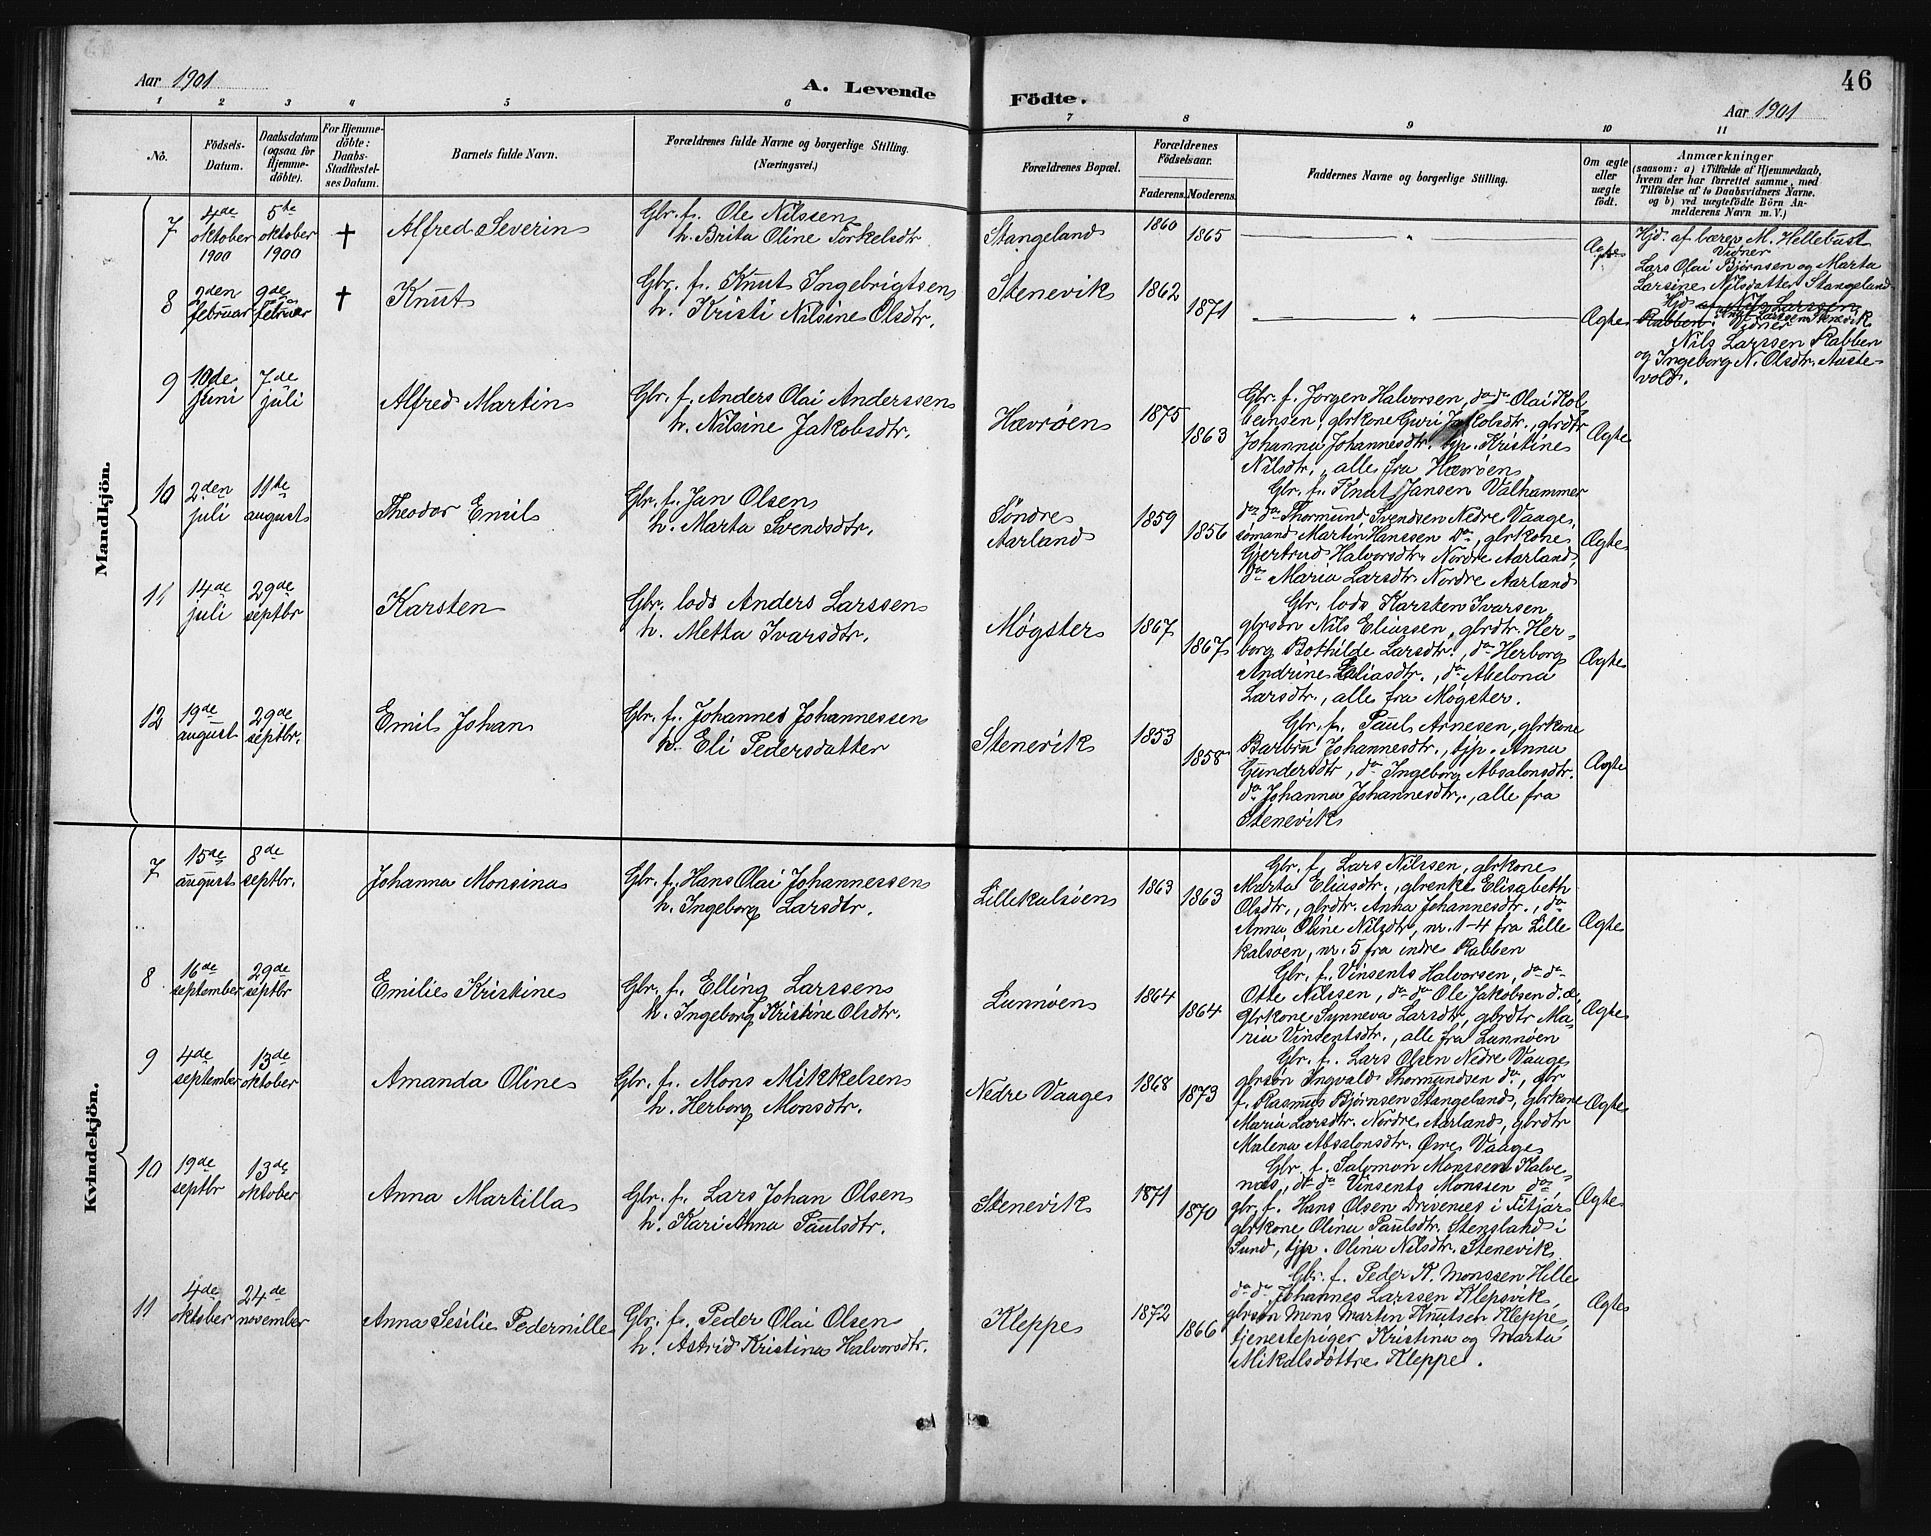 Aar 1901
A. Levende
1 2 3 4 5 6
No.
Födsels-
Datum.
Daabsdatum
(ogsaa for
Hjemme-
döbte).
For Hjemme-
döbte:
Daabs-
Stadfæstel-
ses Datum.
Barnets fulde Navn.
Forældrenes fulde Navne og borgerlige Stilling.
(Næringsvei.)
Mandkjön.
7 4de oktober 1900 5te oktober 1900 † Alfred Severin
Gbr. f. Ole Nilssen
h. Brita Oline Torkelsdtr
8 2den februar 9de februar † Knut
Gbr. f. Knut Ingebrigtsen
h. Kristi Nilsine Olsdtr.
9 10de juni 7de juli Alfred Martin
Gbr. f. Anders Olai Anderssen
h. Nilsine Jakobsdtr.
10 2den juli 11te august Theodor Emil
Gbr. f. Jan Olsen
h. Marta Svendsdtr.
11 14de juli 29de septbr Karsten
Gbr. lods Anders Larssen
h. Metta Ivarsdtr.
12 19de august 29de septbr. Emil Johan
Gbr. f. Johannes Johannessen
h. Eli Pedersdatter
Kvindekjön.
7 15de august 8de septbr. Johanna Monsina
Gbr. f. Hans Olai Johannessen
h. Ingeborg Larsdtr.
8 16de september 29de septbr Emilie Kristine
Gbr. f. Elling Larssen
h. Ingeborg Kristine Olsdtr.
9 4de september 13de oktober Amanda Oline
Gbr. f. Mons Mikkelsen
h. Herborg Monsdtr.
10 19de septbr 13de oktober Anna Martilla
Gbr. f. Lars Johan Olsen
h. Kari Anna Paulsdtr.
11 4de oktober 24de november Anna Sesilie Pedernille
Gbr. f. Peder Olai Olsen
h. Astrid Kristina Halvorsdtr.
46
Födte.
Aar 1901
7 8 9 10 11
Forældrenes Bopæl.
Forældrenes
Födselsaar.
Faderens. Moderens.
Faddernes Navne og borgerlige Stilling.
Om ægte
eller
uægte
födt.
Anmærkninger
(saasom: a) i Tilfælde af Hjemmedaab,
hvem der har forrettet samme, med
Tilföielse af to Daabsvidners Navne.
og b) ved uægtefödte Börn An-
melderens Navn m. V.)
Stangeland 1860 1865 " Ægte
Hjd. af lærer M. Hellebust
Vidner
Lars Olai Bjørnsen og Marta
Larsine Nilsdatter Stangeland
Stenevik 1862 1871 " Ægte
Hjd. af Nils Larssen
Rabben. Larssen Stenevik
Vidner
Nils Larssen Rabben
og Ingeborg N. Olsdtr. Auste-
vold.
Hævrøen 1875 1863
Gbr. f. Jørgen Halvorsen, do do Olai Kol-
beinsen, gbrkone Guri Jakobsdtr., gbrdtr
Johanna Johannesdtr. tjp. Kristine
Nilsdtr., alle fra Hævrøen
Ægte
Søndre
Aarland 1859 1856
Gbr. f. Knut Jansen Valhammer
do do Thormund Svendsen Nedre Vaage,
sømand Martin Hanssen do, gbrkone
Gjertrud Halvorsdtr. Nordre Aarland,
do Maria Larsdtr Nordre Aarland
Ægte
Møgster 1867 1867
Gbr. lods Karsten Ivarsen,
gbrsøn Nils Eliassen, gbrdtr. Her-
borg Bothilde Larsdtr., do Herborg
Andrine Eliasdtr., do Abelona
Larsdtr., alle fra Møgster.
Ægte
Stenevik 1853 1858
Gbr. f. Paul Arnesen, gbrkone
Barbru Johannesdtr., tjp. Anna
Gundersdtr, do Ingeborg Absalonsdtr.
do Johanna Johannesdtr., alle fra
Stenevik
Ægte
Lillekalsøen 1863 1863
Gbr. f. Lars Nilssen, gbrkone
Marta Eliasdtr., gbrenke Elisabeth
Olsdtr., gbrdtr. Anna Johannesdtr., do
Anna Oline Nilsdtr, nr. 1-4 fra Lille
kalsøen, nr. 5 fra indre Rabben
Ægte
Lunnøen 1864 1864
Gbr. f. Vinsents Halvorsen, do do
Otte Nilssen, do do Ole Jakobsen d. æ.,
gbrkone Synneva Larsdtr, gbrdtr Ma-
ria Vinsentsdtr., alle fra Lunnøen
Ægte
Nedre Vaage 1868 1873
Gbr. f. Lars Olsen Nedre Vaage
gbrsøn Ingvald Thormundsen do, gbr
f. Rasmus Bjørnsen Stangeland, gbrkone
Maria Larsdtr. Nordre Aarland, gbrdtr
Malena Absalonsdtr. Øvre Vaage
Ægte
Stenevik 1871 1870
Gbr. f. Salomon Monssen Kalve-
nes, do do Vinsents Monssen do
gbr. f. Hans Olsen Drivenes i Fitjar
gbrkone Olina Paulsdtr. Stensland i
Sund, tjp. Olina Nilsdtr. Stenevik
Ægte
Kleppe 1872 1866
Gbr. f. Peder K. Monssen Hille
do do Johannes Larssen Klepsvik,
gbrsøn Mons Martin Knutsen Kleppe,
tjenestepiger Kristina og Marta
Mikalsdøttre Kleppe.
Ægte